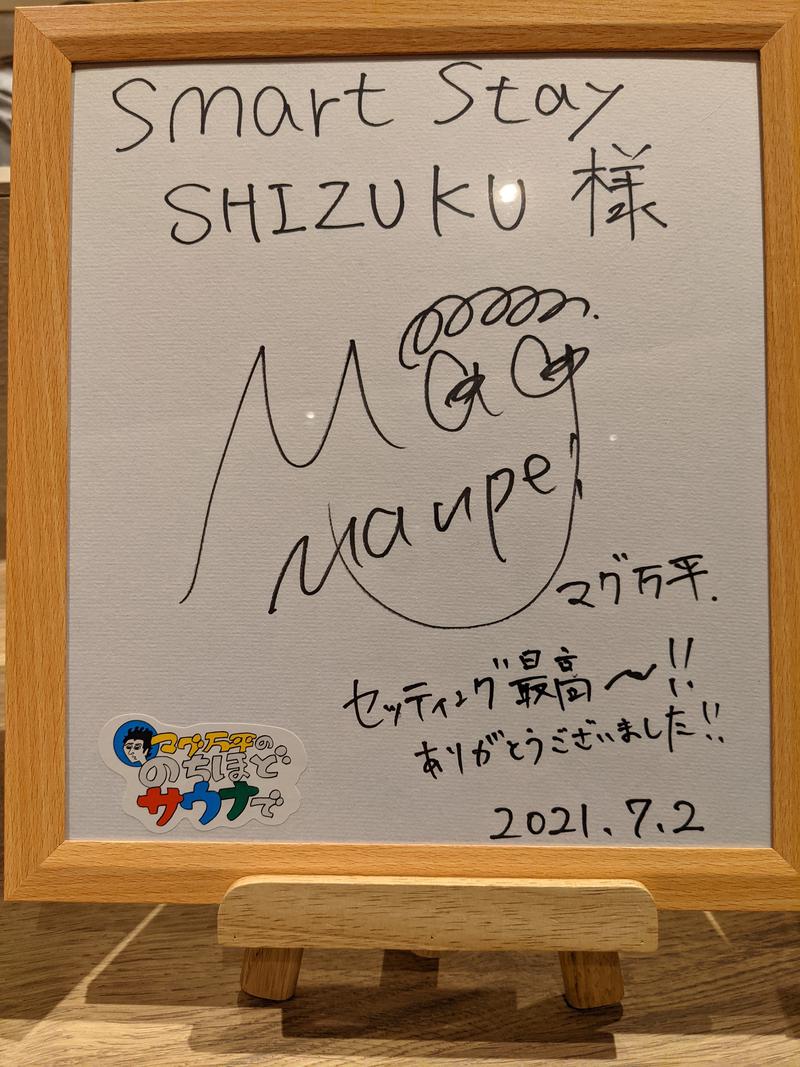 Smart Stay
SHIZUKU 様
Mag
Manpei
マグ万平.
セッティング最高〜!!
ありがとうございました!!
2021.7.2
マグ万平の
のちほど
サウナで